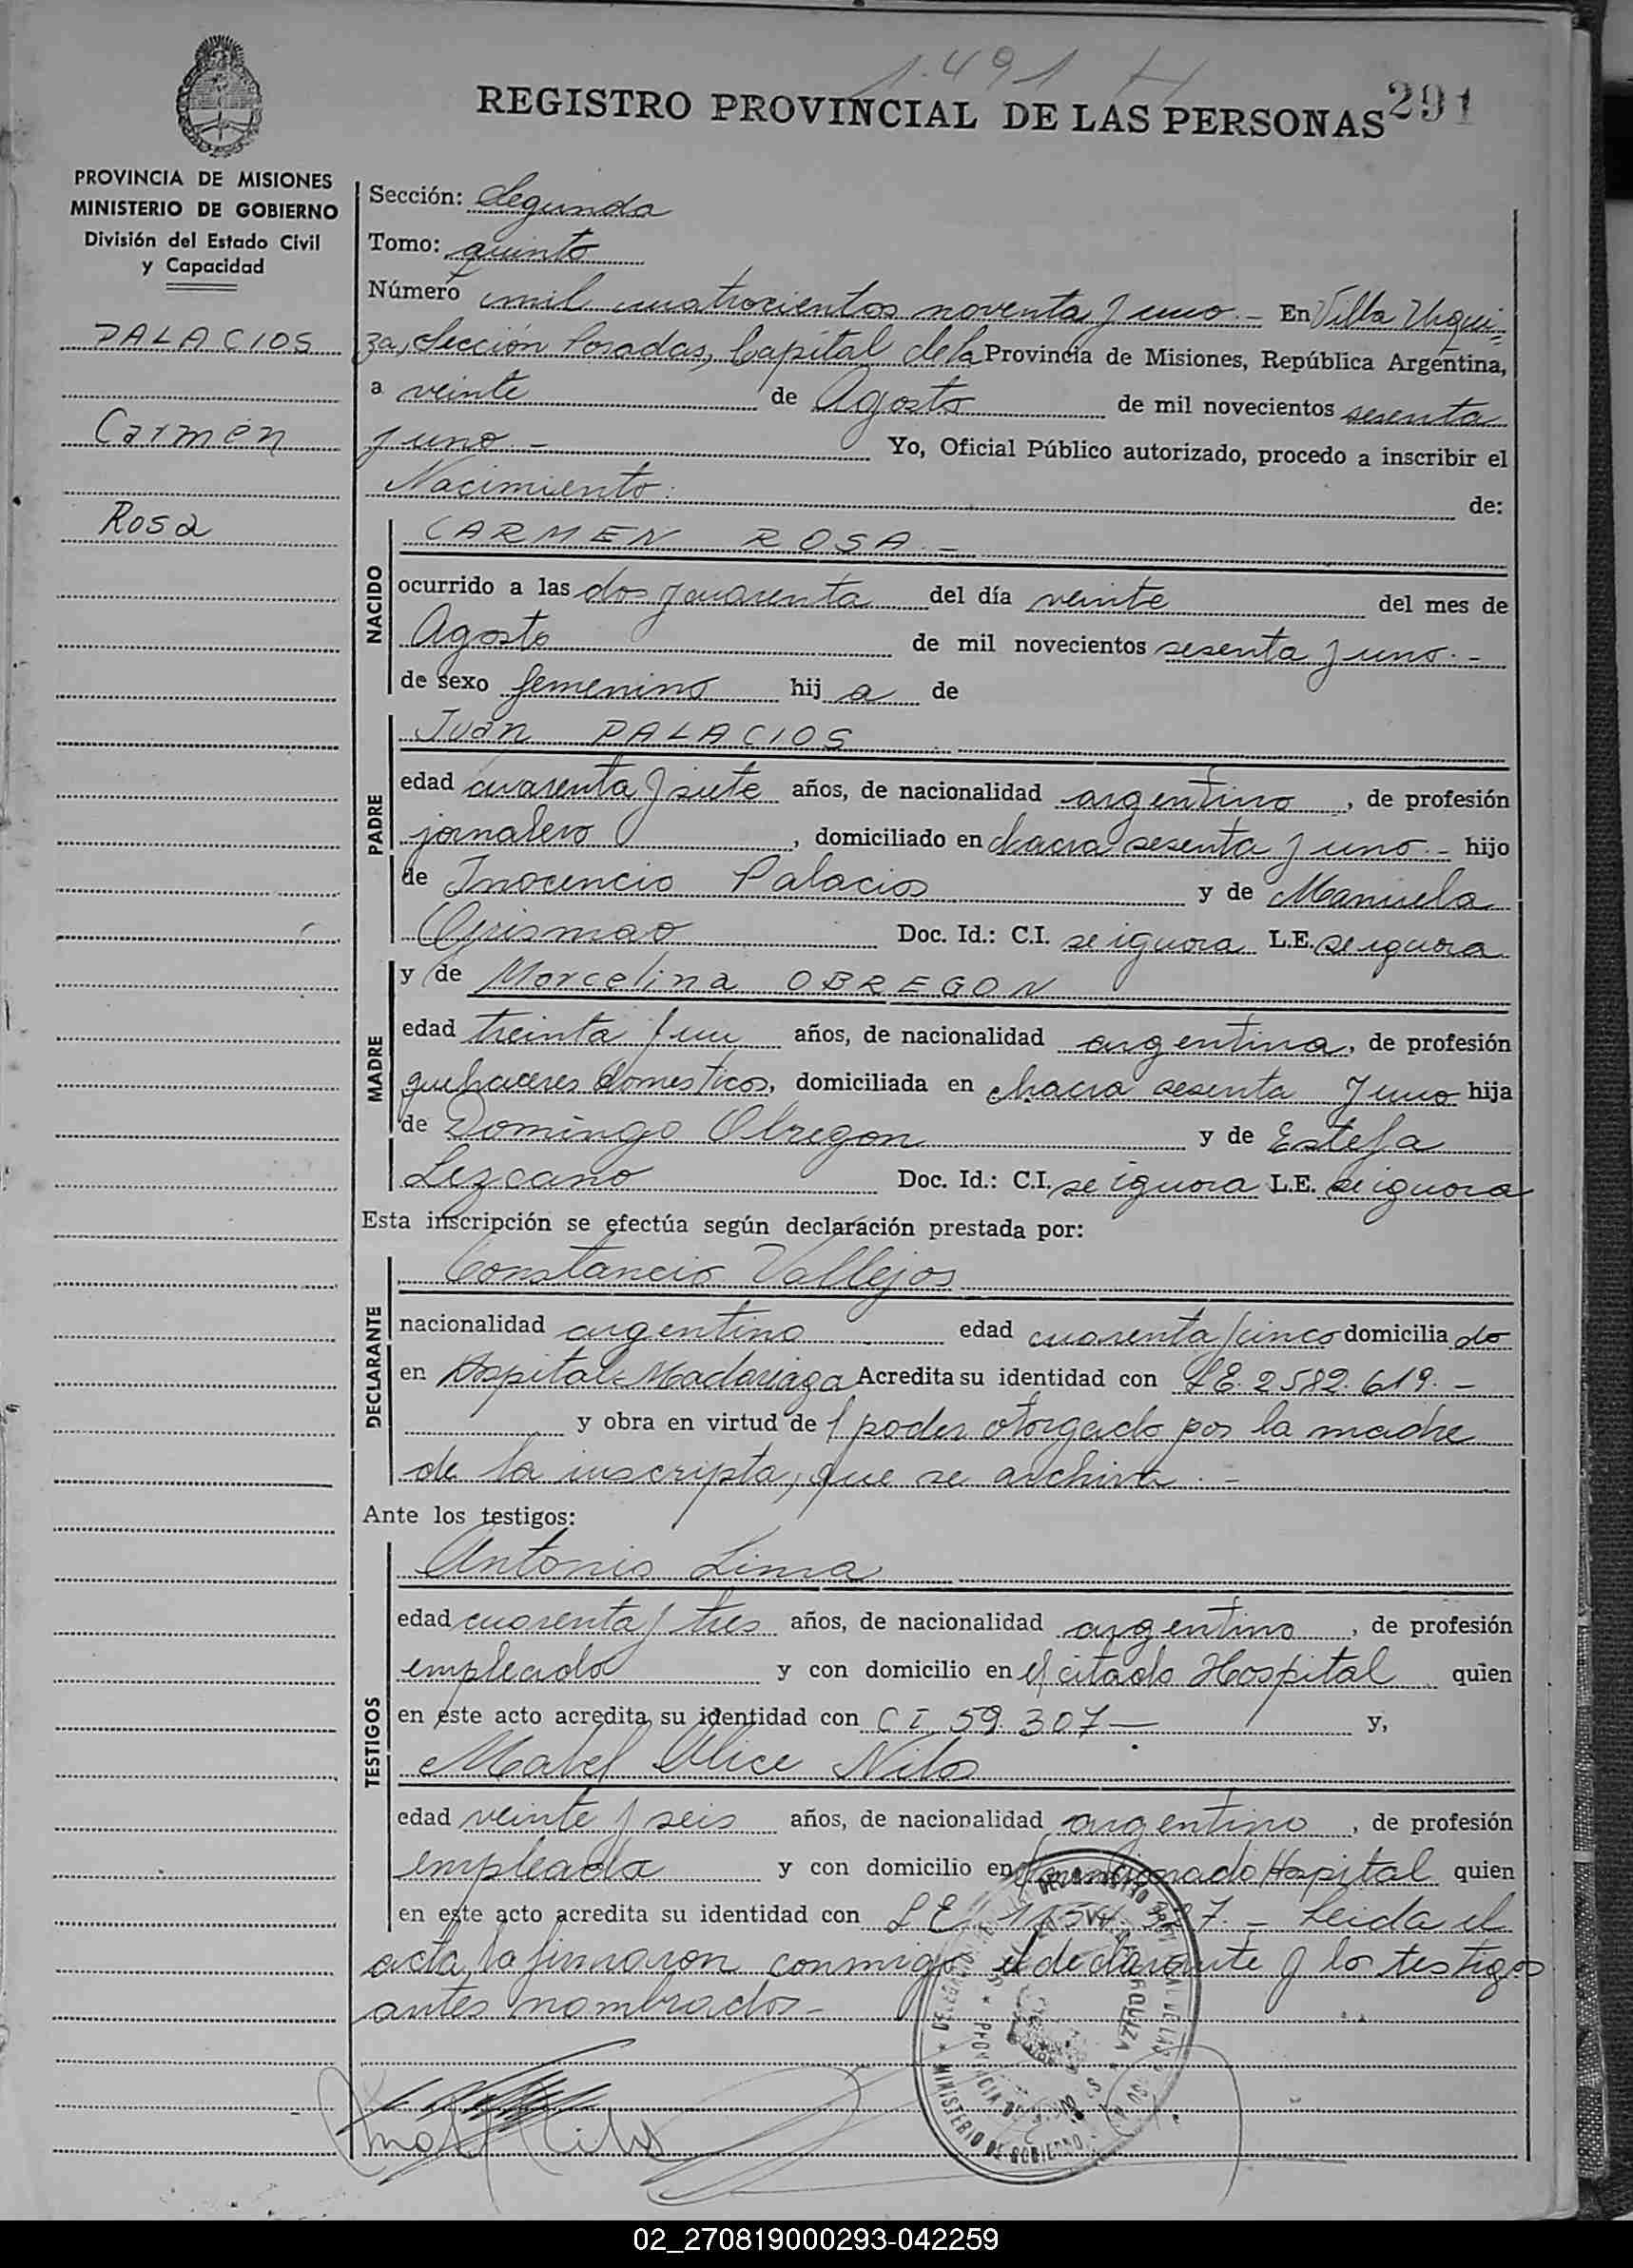 1.491 H
REGISTRO PROVINCIAL DE LAS PERSONAS 291
PROVINCIA DE MISIONES
MINISTERIO DE GOBIERNO
División del Estado Civil
y Capacidad
PALACIOS
Carmen
Rosa
Sección: Segunda
Tomo: quinto
Número mil cuatrocientos noventa y uno.- En Villa Urqui-
za, Sección Posadas, Capital de la Provincia de Misiones, República Argentina,
a veinte de Agosto de mil novecientos sesenta
y uno.- Yo, Oficial Público autorizado, procedo a inscribir el
Nacimiento. de:
NACIDO
CARMEN ROSA.-
ocurrido a las dos y cuarenta del día veinte del mes de
Agosto de mil novecientos sesenta y uno.-
de sexo femenino hij a de
PADRE
Juan PALACIOS
edad cuarenta y siete años, de nacionalidad argentino, de profesión
jornalero, domiciliado en chacra sesenta y uno.- hijo
de Inocencio Palacios y de Manuela
Doc. Id.: C.I. se ignora L.E. se ignora
MADRE
y de Marcelina OBREGON
edad treinta y un años, de nacionalidad argentina, de profesión
quehaceres domesticos, domiciliada en chacra sesenta y uno hija
de Domingo Obregon y de Estefa
Lezcano Doc. Id.: C.I. se ignora L.E. se ignora
Esta inscripción se efectúa según declaración prestada por:
DECLARANTE
Constancio Vallejos
nacionalidad argentino edad cuarenta y cinco domicilia do
en Hospital Madariaga Acredita su identidad con LE 2582.619.-
y obra en virtud de / poder otorgado por la madre
de la inscripta, que se archiva.-
Ante los testigos:
TESTIGOS
Antonio Lima
edad cuarenta y tres años, de nacionalidad argentino, de profesión
empleado y con domicilio en el citado Hospital quien
en este acto acredita su identidad con C I 59.307- y,
Mabel Alice Nilo
edad veinte y seis años, de nacionalidad argentino, de profesión
empleada y con domicilio en mencionado Hospital quien
en este acto acredita su identidad con L E - Leida el
acta, la firmaron conmigo el declarante y los testigos
antes nombrados-
MINISTERIO DE GOBIERNO
02_270819000293-042259